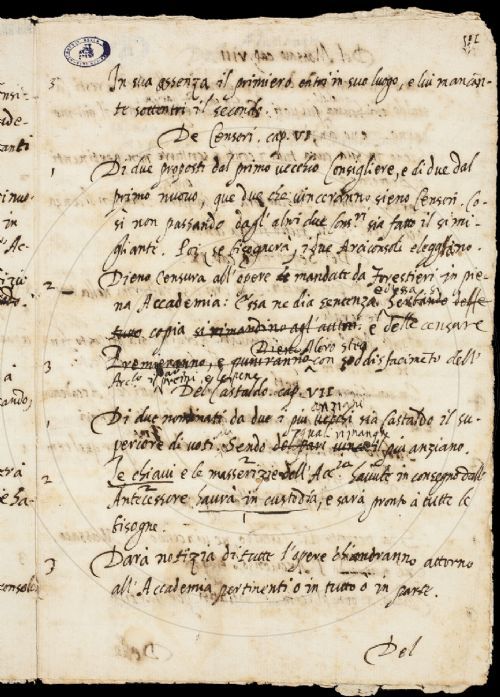 3 In sua assenza il primiero entri in suo luogo, e lui mancan-
te sottentri il secondo.
De Censori. cap. VI.
1 Di due proposti dal primo vecchio Consigliere, e di due dal
primo nuovo, que due che vinceranno sieno Censori. Co-
si non passando dagl' altri due Cons.ri sia fatto il simi-
gliante. Poi se bisognera, i due Araconsoli eleggano.
2 Dieno Censura all' opere mandate da forestieri in pie-
na Accademia: Essa ne dia sentenza. Sentando delle
edessa si
tutte copia si rimandino agl' auttori. e delle censure
3 Premieranno, e puniranno con soddisfacimento dell'
Arc.lo i premi, e le pene
Del Castaldo. cap. VII
1 Di due nominati da due i piu vecchi sia Castaldo il su-
anziani
periore di voti. Sendo del pari vinca il più anziano.
2 Le chiavi e le masserizie dell' Acc.ia havute in consegna dall'
Antecessore havra in custodia, e sarà pronto à tutte le
bisogne.
3 Darà notizia di tutte l' opere ch'andranno attorno
all' Accademia pertinenti ò in tutto ò in parte.
Del